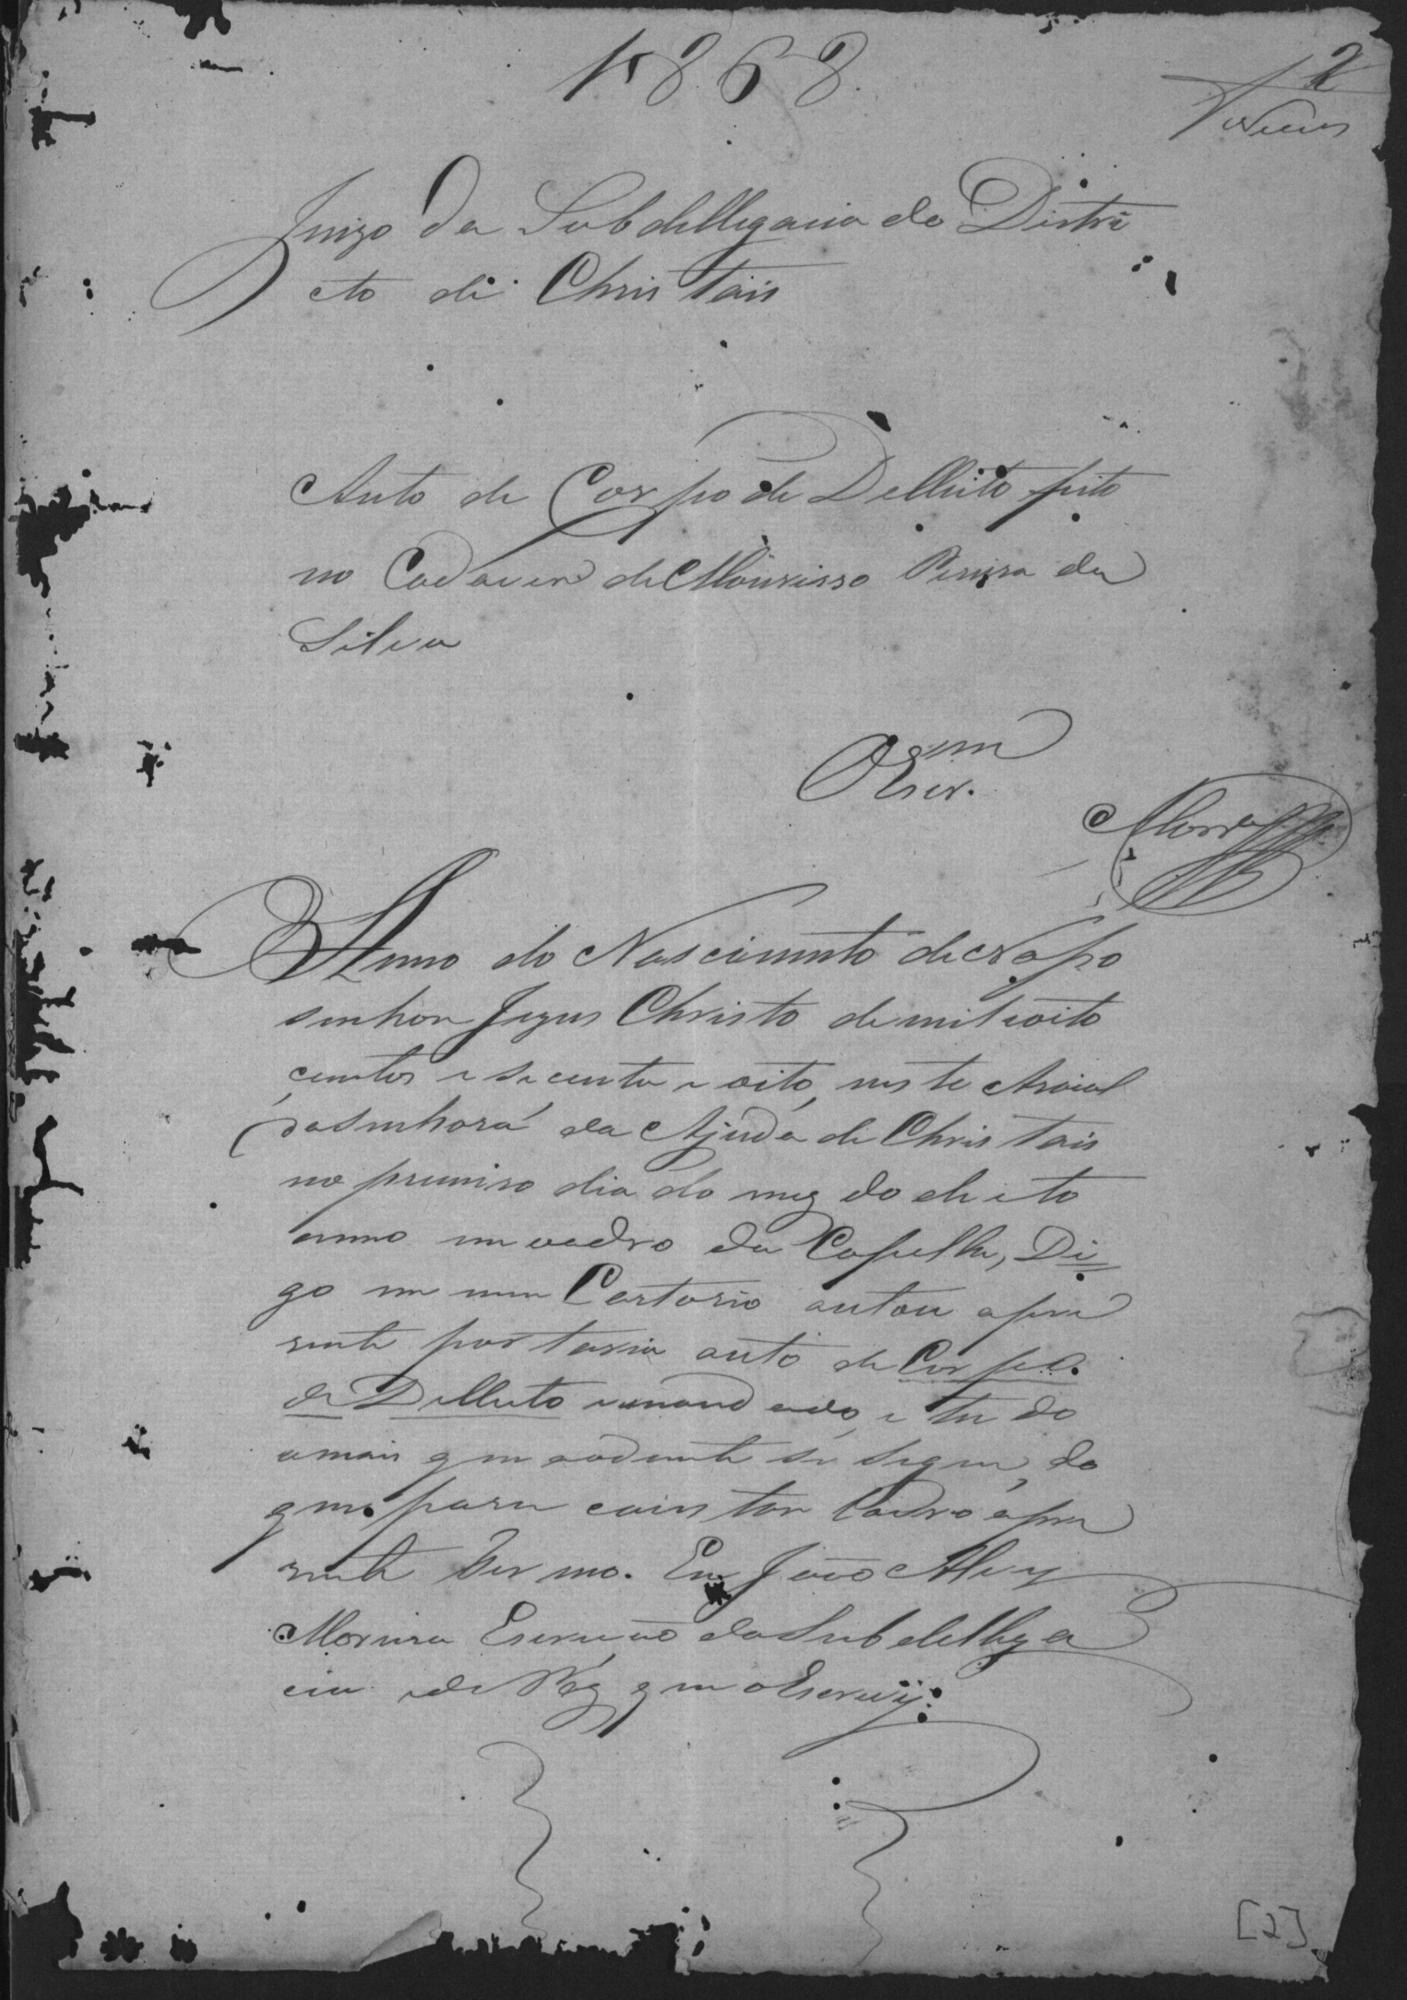 1868.
2
Juizo da Subdellegacia do Distri
cto de Christais
Auto de Corpo de Dellito feito
no Cadaver de Mourisso Pereira da
Silva
O Escr.m
Morra
Anno do Nascimento de Noso
senhor Jezus Christo de mil e oito
centos e secenta e oito, neste Araial
da senhora da Ajuda de Christais
no premeiro dia do mez do dicto
anno em o adro da Capella, Di
go em meu Cartorio autou a pre
zente portaria auto de Corpo
de Dellicto e mandado, e tudo
o mais que adiente se segue, do
que para coinstar lavro a pre
zente termo. Eu João Alz
Moreira Escrivão da Subdellega
cia de Paz que o Escrevy.
[2]